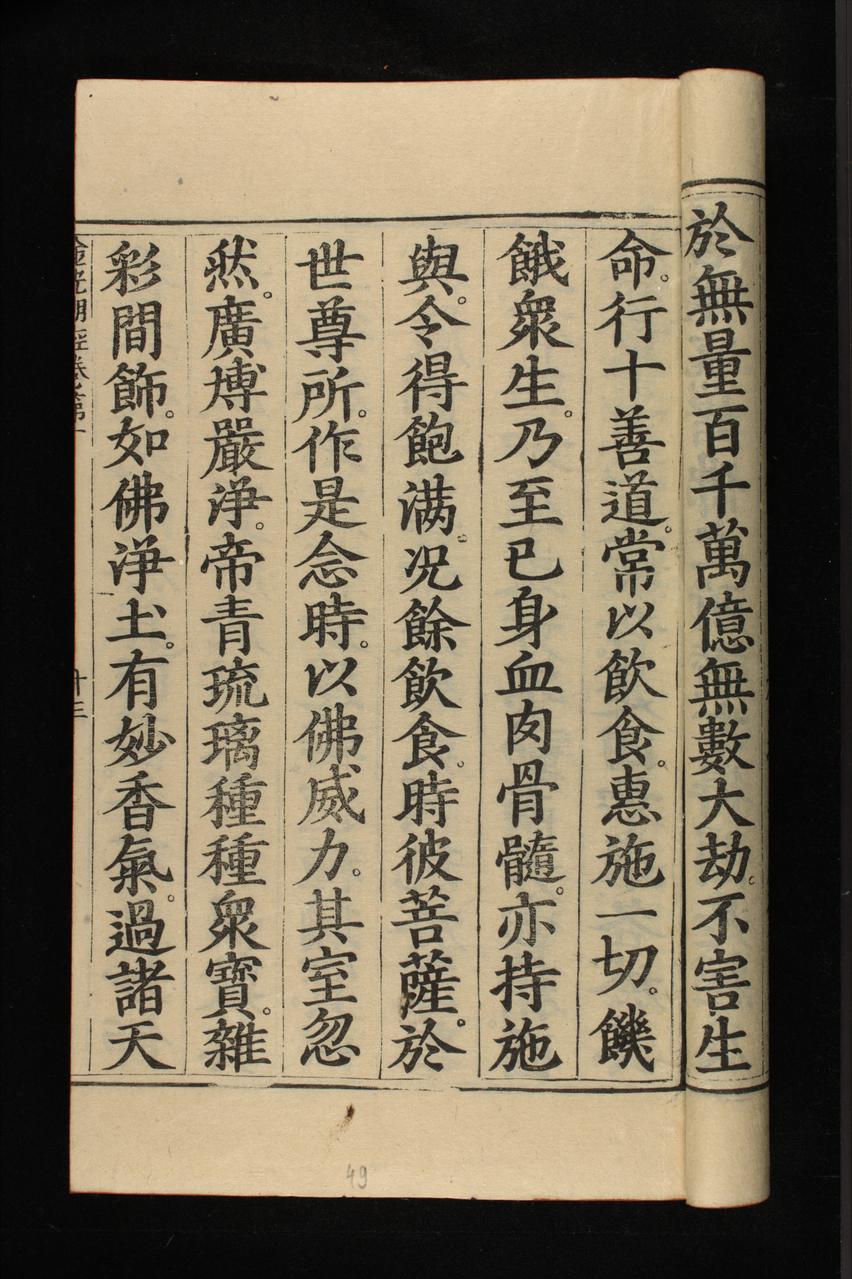 於無量百千萬億無數大劫。不害生
命。行十善道。常以飲食。惠施一切。饑
餓衆生。乃至已身血肉骨髓。亦持施
與。令得飽滿。况餘飲食。時彼菩薩。於
世尊所。作是念時。以佛威力。其室忽
然。廣博嚴淨。帝青琉璃種種衆寶。雜
彩間飾。如佛淨土。有妙香氣。過諸天
金光明經卷第一
十三
49